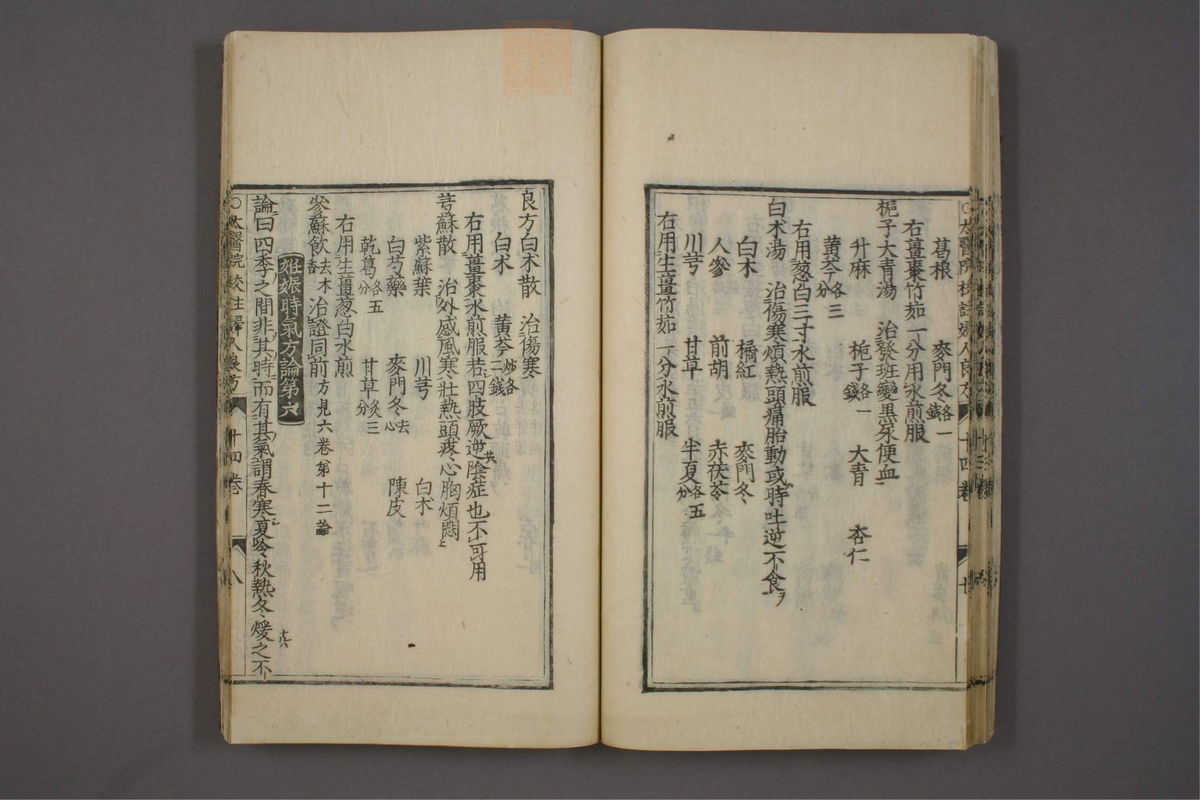 ○太醫院校註婦人良方 十四卷 七
葛根 麥門冬各一錢
右薑棗竹茹一分用水煎服
梔子大青湯 治發班變黒尿便血
升麻 梔子各一錢 大青 杏仁
黄芩各三分
右用葱白三寸水煎服
白朮湯 治傷寒煩熱頭痛胎動或時吐逆不食
白朮 橘紅 麥門冬
人參 前胡 赤茯苓
川芎 甘草 半夏各五分
右用生薑竹茹一分水煎服
良方白朮散 治傷寒
白朮 黄芩炒各二錢
右用薑棗水煎服若四肢厥逆陰症也不可用
芎蘇散 治外感風寒壯熱頭疼心胸煩悶
紫蘇葉 川芎 白朮
白芍藥 麥門冬去心 陳皮
乾葛各五分 甘草炙三分
右用生薑葱白水煎
參蘇飲去木香 治證同前方見六卷第十二論
妊娠時氣方論第六
論曰四季之間非其時而有其氣謂春寒夏冷秋熱冬煖之不
○太醫院校註婦人良方 十四卷 八